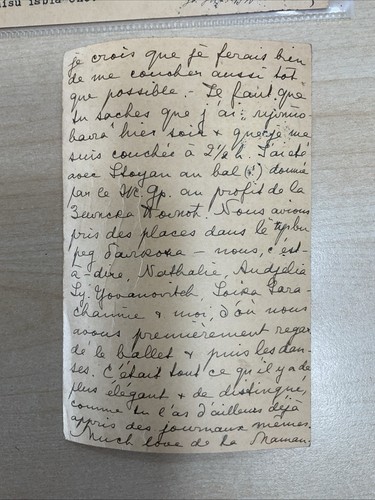 je crois que je ferais bien
de me coucher aussi tôt
que possible. - Il faut que
tu saches que j'ai
hier soir & que je me
suis couchée à 2½ h. J'ai été
avec Stoyan au bal (!) donné
par le au profit de la
Nous avions
pris des places dans le
nous, c'est-
à-dire, Nathalie, Andjelia
Ly. Yovanovitch, Soika Para-
& moi, d'où nous
avons premièrement regar-
dé le ballet & puis les dan-
ses. C'était tout ce qu'il y a de
plus élégant & de distingué,
comme tu l'as d'ailleurs déjà
appris des journaux mêmes.
Much love de la Maman.